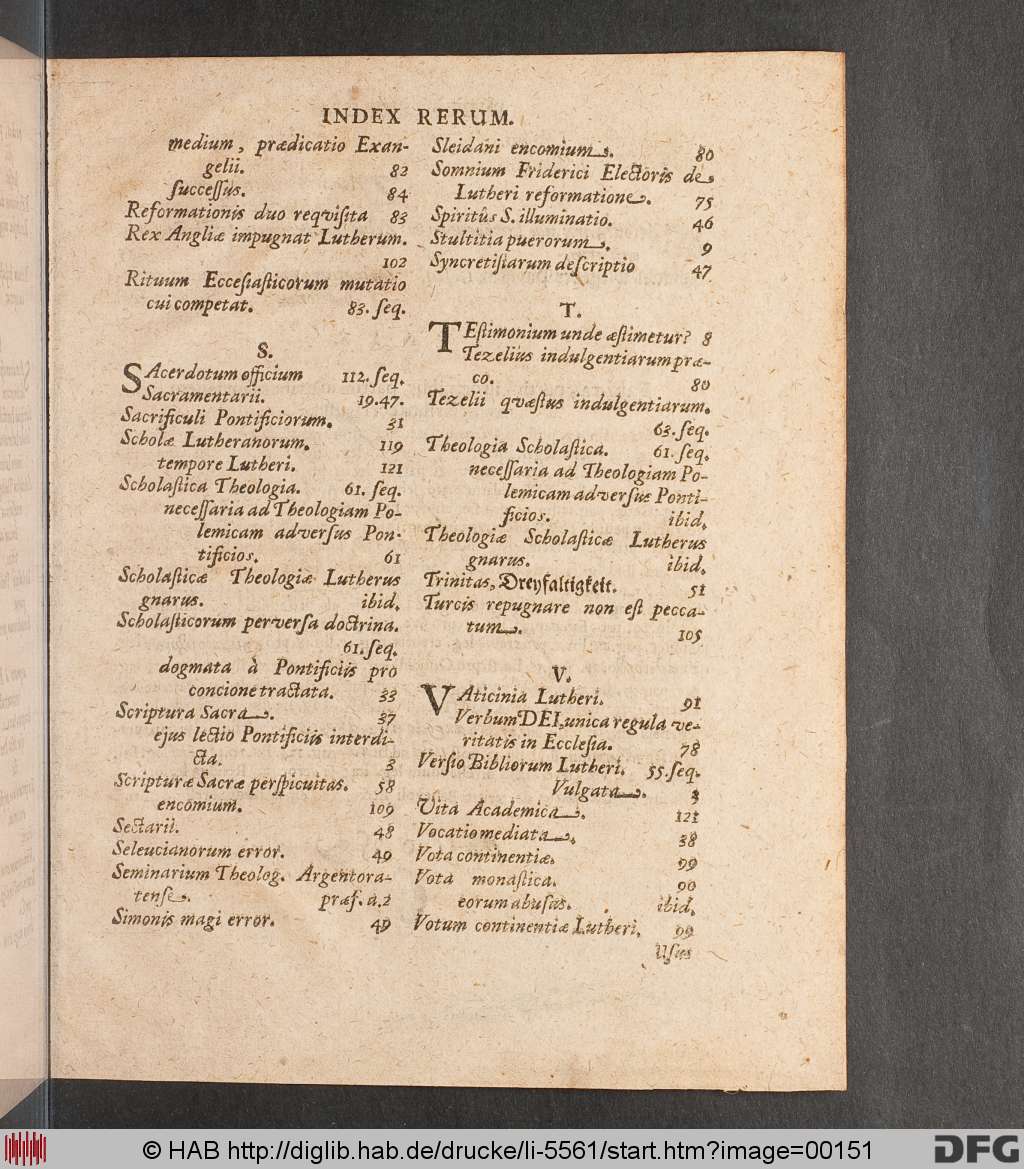 INDEX RERUM.
medium, prædicatio Exan-
gelii. 82
ſucceſſus. 84
Reformationis duo reqviſita 83
Rex Angliæ impugnat Lutherum.
102
Rituum Eccesiaſticorum mutatio
cui competat. 83. ſeq.
S.
SAcerdotum officium 112. ſeq.
Sacramentarii. 19.47.
Sacrificuli Pontificiorum. 31
Scholæ Lutheranorum. 119
tempore Lutheri. 121
Scholaſtica Theologia. 61. ſeq.
neceſſaria ad Theologiam Po-
lemicam adverſus Pon-
tificios. 61
Scholaſticæ Theologiæ Lutherus
gnarus. ibid.
Scholaſticorum perverſa doctrina.
61. ſeq.
dogmata à Pontificiis pro
concione tractata. 33
Scriptura Sacra. 37
ejus lectio Pontificiis interdi-
cta. 3
Scripturæ Sacræ perſpicuitas. 58
encomium. 109
Sectarii. 48
Seleucianorum error. 49
Seminarium Theolog. Argentora-
tenſe. præf. a.2
Simonis magi error. 49
Sleidani encomium. 80
Somnium Friderici Electoris de
Lutheri reformatione. 75
Spiritûs S. illuminatio. 46
Stultitia puerorum. 9
Syncretiſtarum deſcriptio 47
T.
TEſtimonium unde æſtimetur? 8
Tezelius indulgentiarum præ-
co. 80
Tezelii qvæſtus indulgentiarum.
63. ſeq.
Theologia Scholaſtica. 61. ſeq.
neceſſaria ad Theologiam Po-
lemicam adverſus Ponti-
ficios. ibid.
Theologiæ Scholaſticæ Lutherus
gnarus. ibid.
Trinitas, Dreyfaltigkeit. 51
Turcis repugnare non eſt pecca-
tum. 105
V.
VAticinia Lutheri. 91
Verbum DEI, unica regula ve-
ritatis in Eccleſia. 78
Verſio Bibliorum Lutheri. 55. ſeq.
Vulgata. 3
Vita Academica. 121
Vocatio mediata. 38
Vota continentiæ. 99
Vota monaſtica. 90
eorum abuſus. ibid.
Votum continentiæ Lutheri. 99
Uſus
© HAB http://diglib.hab.de/drucke/li-5561/start.htm?image=00151
DFG